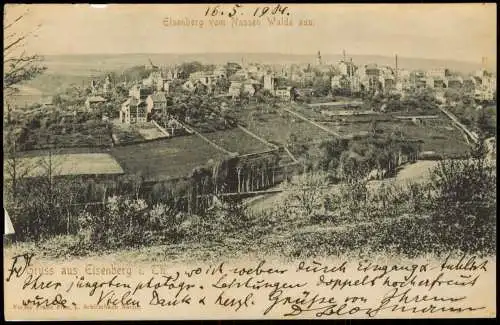 16.5.1904.
Eisenberg vom Nassen Walde aus.
Gruss aus Eisenberg i. Th.
wo ich eben durch Eingang & Anblick
Ihrer jüngsten photogr. Leistungen, doppelt hocherfreut
wurde. Vielen Dank & herzl. Grüsse von Ihrem